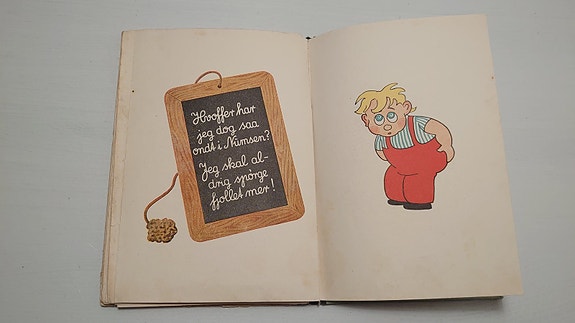 Hvoffer har
jeg dog saa
ondt i Numsen?
Jeg skal al-
drig spørge
fjollet mer!